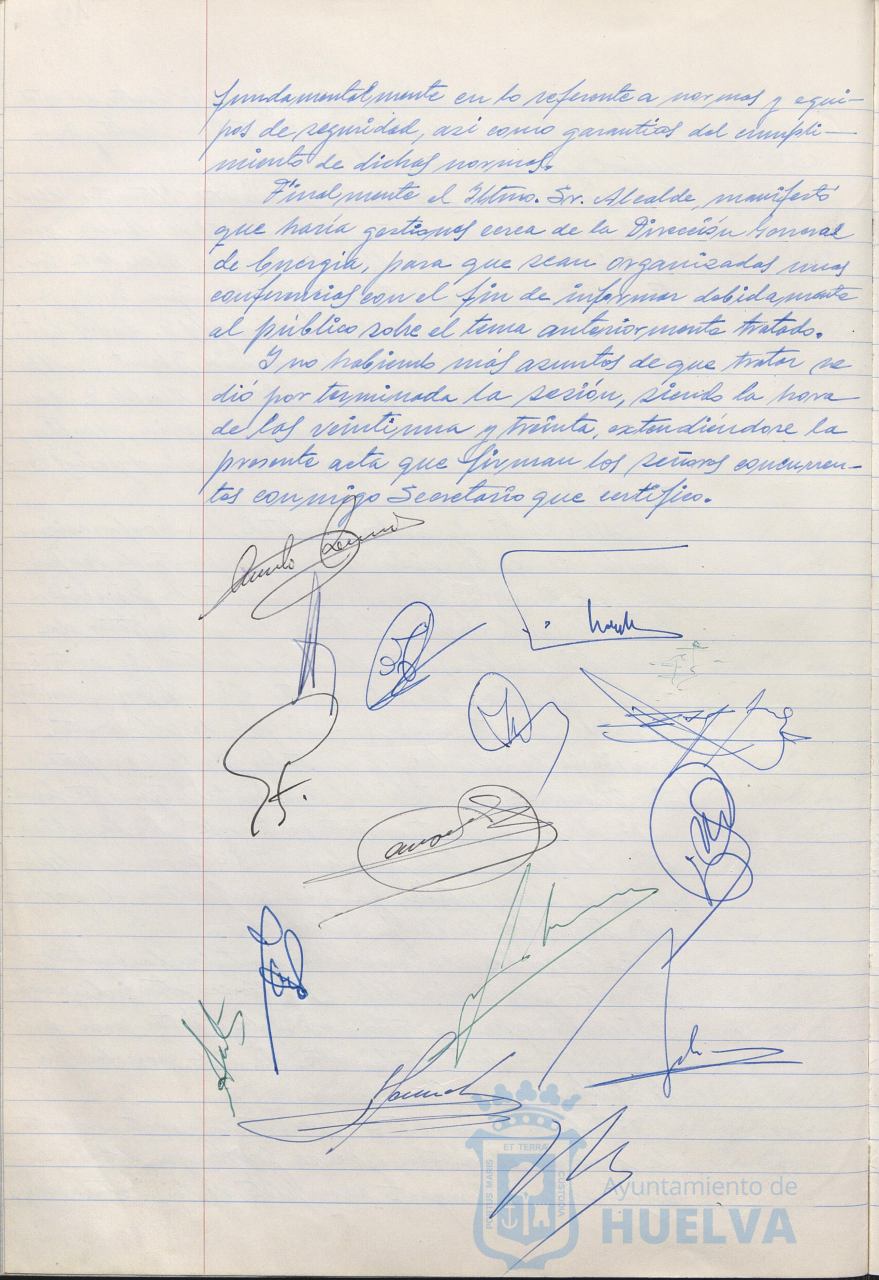 fundamentalmente en lo referente a normas y equi-
pos de seguridad, asi como garantias del cumpli-
miento de dichas normas.
Finalmente el Iltmo. Sr. Alcalde, manifestó
que haría gestiones cerca de la Dirección General
de Energia, para que sean organizadas unas
conferencias con el fin de informar debidamente
al público sobre el tema anteriormente tratado.
Y no habiendo más asuntos de que tratar se
dió por terminada la sesión, siendo la hora
de las veintiuna y treinta, extendiéndose la
presente acta que firman los señores concurren-
tes conmigo Secretario que certifico.
ET TERRA
PORTUS MARIS
CUSTODIA
Ayuntamiento de
HUELVA